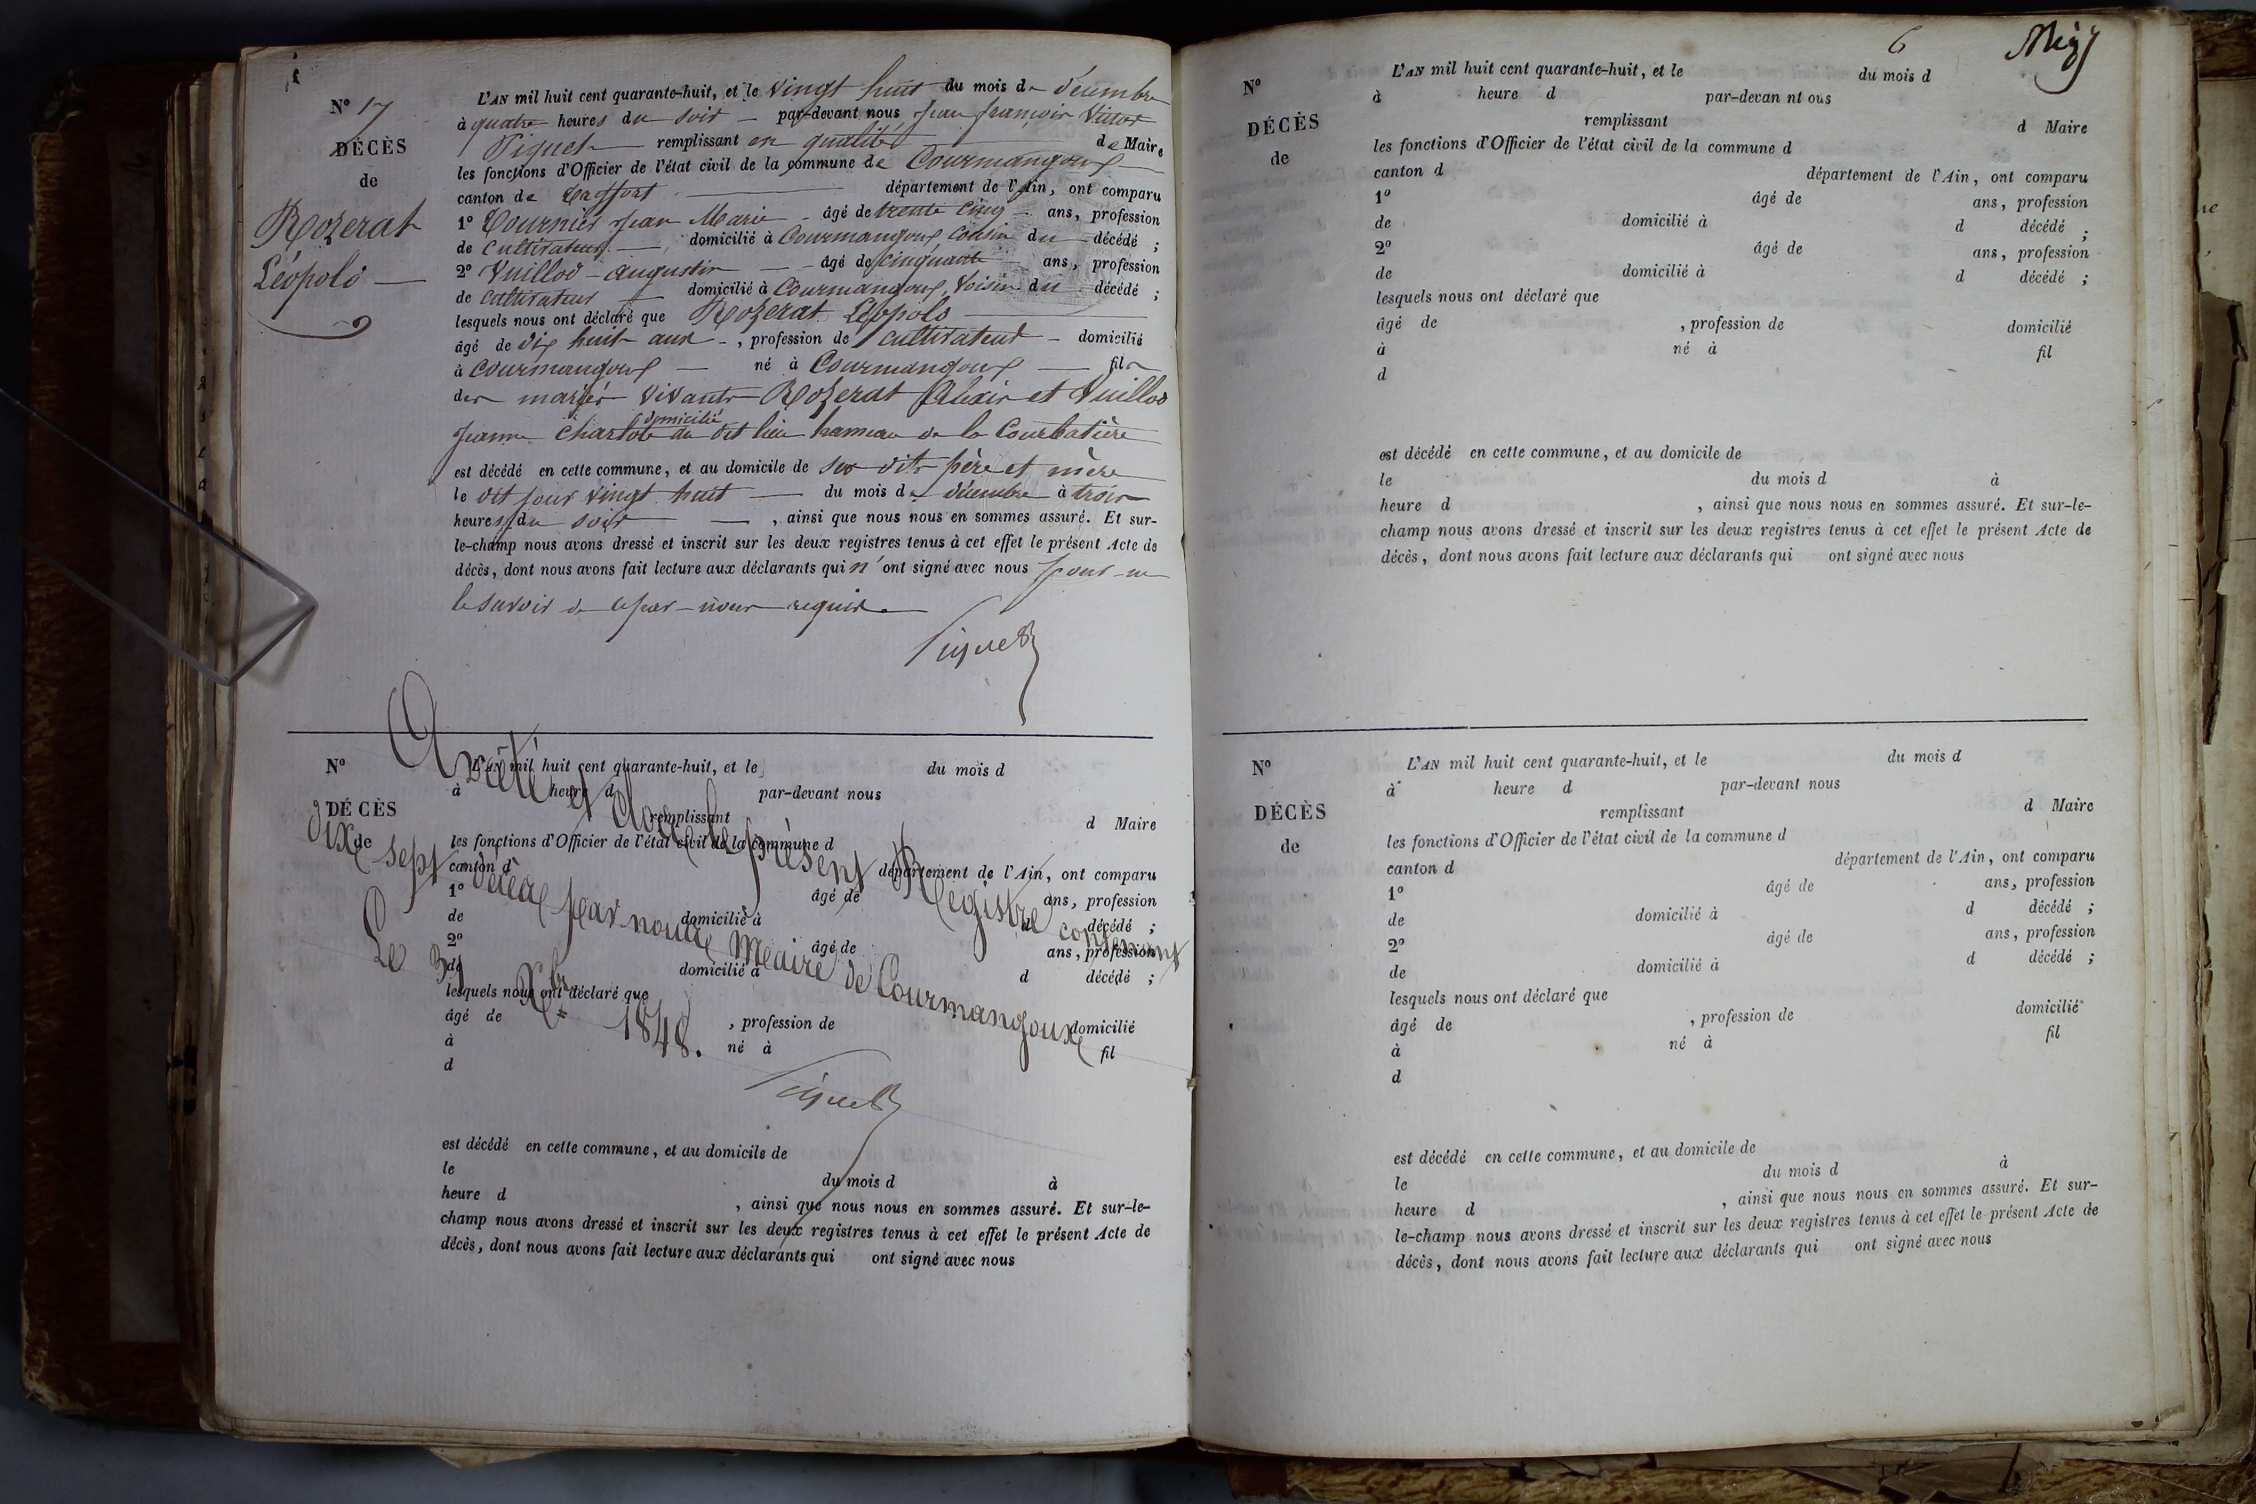 N° 17
DÉCÈS
de
Rozerat
Léopold
L'AN mil huit cent quarante-huit, et le vingt huit du mois de décembre
à quatre heures du soir par-devant nous Jean François Victor
Piquet remplissant en qualité de Maire
les fonctions d'Officier de l'état civil de la commune de Courmangoux
canton de Treffort département de l'Ain, ont comparu
1° Tournier Jean Marie âgé de trente cinq ans, profession
de cultivateur domicilié à Courmangoux, cousin du décédé ;
2° Vuillod Augustin âgé de cinquante ans, profession
de cultivateur domicilié à Courmangoux, voisin du décédé ;
lesquels nous ont déclaré que Rozerat Léopold
âgé de dix huit ans, profession de cultivateur domicilié
à Courmangoux né à Courmangoux fils
des mariés vivants Rozerat Alexis et Vuillod
domicilié
Jeanne du dit lieu hameau de la Courbatière
est décédé en cette commune, et au domicile de ses dits père et mère
le dit jour vingt huit du mois de décembre à trois
heures du soir, ainsi que nous nous en sommes assuré. Et sur-
le-champ nous avons dressé et inscrit sur les deux registres tenus à cet effet le présent Acte de
décès, dont nous avons fait lecture aux déclarants qui n'ont signé avec nous pour ne
le savoir de ce par nous requis
Piquet
N°
DÉCÈS
de
L'AN mil huit cent quarante-huit, et le du mois d
à heure d par-devant nous
remplissant d Maire
les fonctions d'Officier de l'état civil de la commune d
canton d département de l'Ain, ont comparu
1° âgé de ans, profession
de domicilié à d décédé ;
2° âgé de ans, profession
de domicilié à d décédé ;
lesquels nous ont déclaré que
âgé de , profession de domicilié
à né à fil
d
est décédé en cette commune, et au domicile de
le du mois d à
heure d , ainsi que nous nous en sommes assuré. Et sur-le-
champ nous avons dressé et inscrit sur les deux registres tenus à cet effet le présent Acte de
décès, dont nous avons fait lecture aux déclarants qui ont signé avec nous
Arrêté et Clos le présent Registre contenant
dix sept décès par nous Maire de Courmangoux
Le 31 Xbre 1848.
Piquet
6
N°
DÉCÈS
de
L'AN mil huit cent quarante-huit, et le du mois d
à heure d par-devan nt ous
remplissant d Maire
les fonctions d'Officier de l'état civil de la commune d
canton d département de l'Ain, ont comparu
1° âgé de ans, profession
de domicilié à d décédé ;
2° âgé de ans, profession
de domicilié à d décédé ;
lesquels nous ont déclaré que
âgé de , profession de domicilié
à né à fil
d
est décédé en cette commune, et au domicile de
le du mois d à
heure d , ainsi que nous nous en sommes assuré. Et sur-le-
champ nous avons dressé et inscrit sur les deux registres tenus à cet effet le présent Acte de
décès, dont nous avons fait lecture aux déclarants qui ont signé avec nous
N°
DÉCÈS
de
L'AN mil huit cent quarante-huit, et le du mois d
à heure d par-devant nous
remplissant d Maire
les fonctions d'Officier de l'état civil de la commune d
canton d département de l'Ain, ont comparu
1° âgé de ans, profession
de domicilié à d décédé ;
2° âgé de ans, profession
de domicilié à d décédé ;
lesquels nous ont déclaré que
âgé de , profession de domicilié
à né à fil
d
est décédé en cette commune, et au domicile de
le du mois d à
heure d , ainsi que nous nous en sommes assuré. Et sur-
le-champ nous avons dressé et inscrit sur les deux registres tenus à cet effet le présent Acte de
décès, dont nous avons fait lecture aux déclarants qui ont signé avec nous